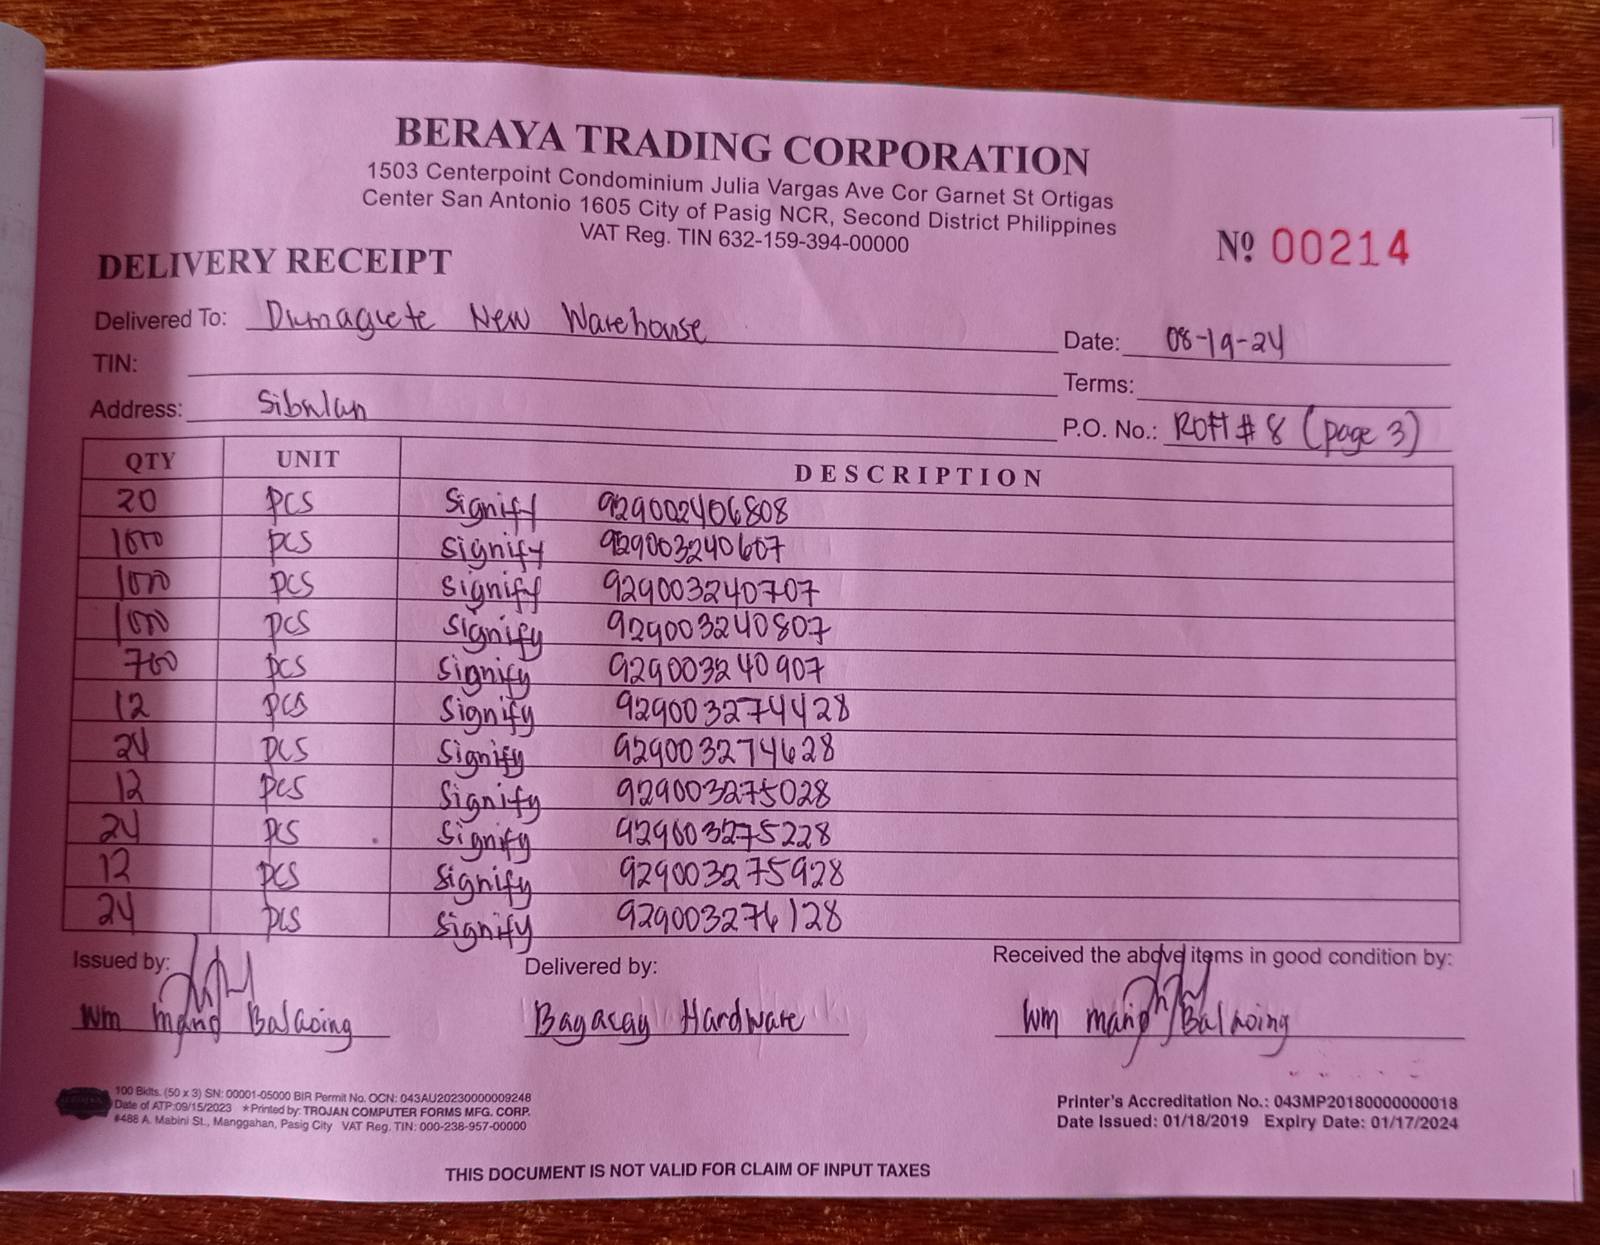 BERAYA TRADING CORPORATION
1503 Centerpoint Condominium Julia Vargas Ave Cor Garnet St Ortigas
Center San Antonio 1605 City of Pasig NCR, Second District Philippines
VAT Reg. TIN 632-159-394-00000
Nº 00214
DELIVERY RECEIPT
Delivered To: Dumaguete New Warehouse
Date: 08-19-24
TIN:
Terms:
Address: Sibulan
P.O. No.: ROFT # 8 (page 3)
QTY UNIT DESCRIPTION
20 pcs Signify 929002406808
1000 pcs Signify 929003240607
1000 pcs Signify 929003240707
1000 pcs Signify 929003240807
760 pcs Signify 929003240907
12 pcs Signify 929003274428
24 pcs Signify 929003274628
12 pcs Signify 929003275028
24 pcs Signify 929003275228
12 pcs Signify 929003275928
24 pcs Signify 929003276128
Issued by:
Delivered by:
Received the above items in good condition by:
Wm Balaoing
Bagacay Hardware
Wm Balaoing
100 Bklts. (50 x 3) SN: 00001-05000 BIR Permit No. OCN: 043AU20230000009248
Date of ATP:09/15/2023 *Printed by: TROJAN COMPUTER FORMS MFG. CORP.
#488 A. Mabini St., Manggahan, Pasig City VAT Reg. TIN: 000-238-957-00000
Printer's Accreditation No.: 043MP20180000000018
Date Issued: 01/18/2019 Expiry Date: 01/17/2024
THIS DOCUMENT IS NOT VALID FOR CLAIM OF INPUT TAXES